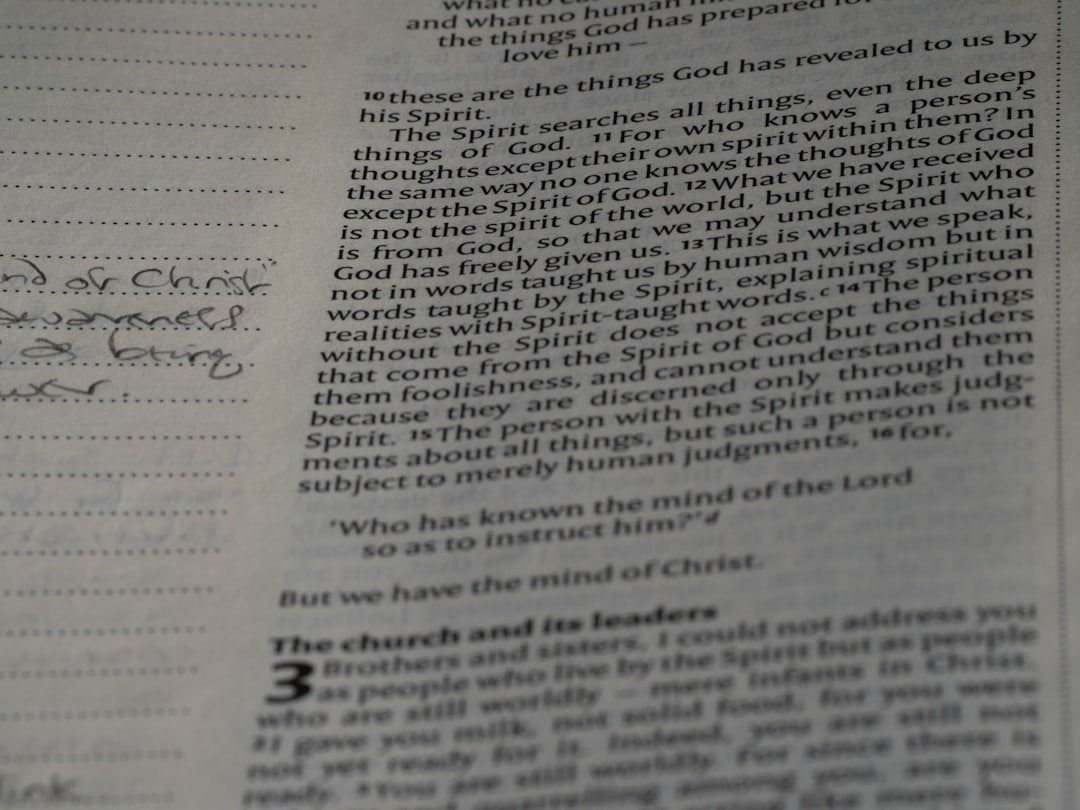 nd of Christ
awareness
being
link
what no
and what no human
the things God has prepared for
love him –
10 these are the things God has revealed to us by
his Spirit.
The Spirit searches all things, even the deep
things of God. 11 For who knows a person's
thoughts except their own spirit within them? In
the same way no one knows the thoughts of God
except the Spirit of God. 12 What we have received
is not the spirit of the world, but the Spirit who
is from God, so that we may understand what
God has freely given us. 13 This is what we speak,
not in words taught us by human wisdom but in
words taught by the Spirit, explaining spiritual
realities with Spirit-taught words. c 14 The person
without the Spirit does not accept the things
that come from the Spirit of God but considers
them foolishness, and cannot understand them
because they are discerned only through the
Spirit. 15 The person with the Spirit makes judg-
ments about all things, but such a person is not
subject to merely human judgments, 16 for,
'Who has known the mind of the Lord
so as to instruct him?' d
But we have the mind of Christ.
The church and its leaders
3 Brothers and sisters, I could not address you
as people who live by the Spirit but as people
who are still worldly – mere infants in Christ.
2 I gave you milk, not solid food, for you were
not yet ready for it. Indeed, you are still not
ready. 3 You are still worldly. For since there is
quarrelling among you, are you